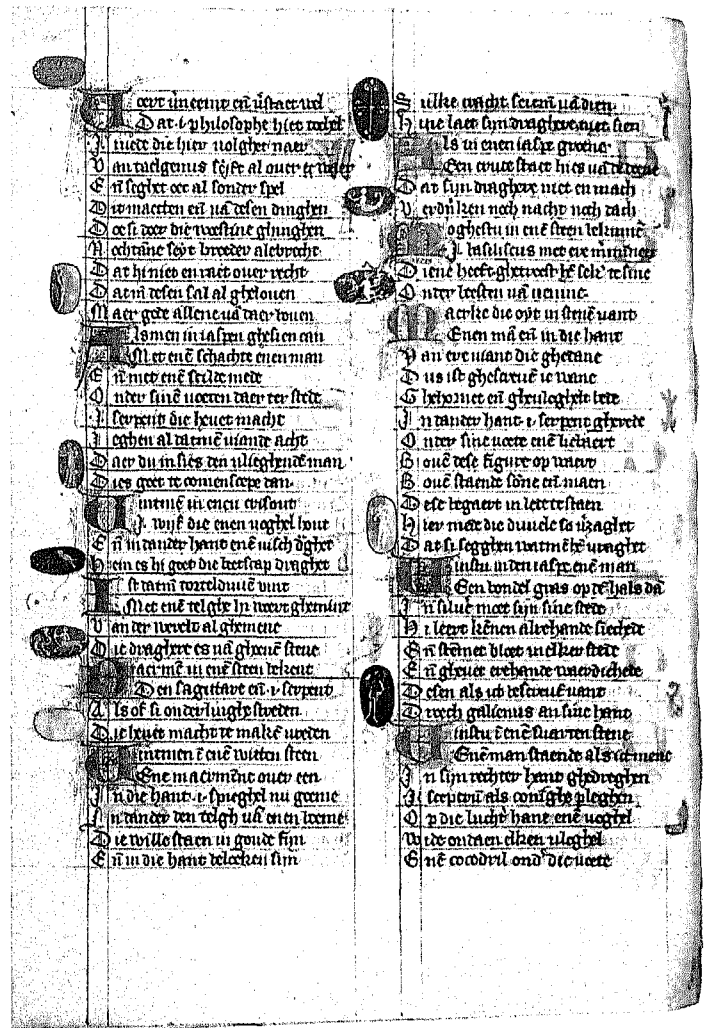 oert vneerne en vstaet wel
Dat .i. philosophe hiet techel
I nuede die hier volghet naer
V an tuelgenus seist al ouer waer
E n seghet oec al sonder spel
D at maecten en va desen dinghen
D oe si doer die woestine ghinghen
N ochtane seyt broeder alebrecht
D at hi niet en raet ouer recht
D at in desen sal al ghelouen
M aer gode allene va daer bouen
A lsmen in iaspen ghesien can
M et ene schachte enen man
E n met ene scilde mede
O nder sine voeten daer ter stede
I serpent die heuet macht
I eghen al datmen viande acht
D aer du in sies den vlieghende man
D ies goet te comenscepe dan
V intme in enen
I. wijf die enen voghel hout
E n in dander hant ene visch
H em es hi goet die boetscap draghet
I st datm torteldune vint
M et ene telghe in
V an der werelt al ghemene
D ie draghere es va ghene stene
aerme in enen steen bekent
Den sagittare en .i. serpent
A ls of si onderlinghe streden
D ie heuet macht te make vreden
V intmen i ene witen steen
Ene maerminne ouer een
I n die hant .i. spieghel nu goeme
I n dander den telgh va enen boeme
D ie wille staen in goude fijn
E n in die hant beloken sijn
S ulke cracht screim va dien
H ine laet sijn draghere niet sien
A ls in enen iaspe groene
Een cruce staet hies va doene
D at sijn draghere niet en mach
V erdrinken noch nacht noch dach
M oghestu in ene steen bekinne
I. basiliscus met ere minnen
D iene heeft ghetroest he selue te sine
O nder beesten va venine
M aerke die oyt in stene vant
Enen ma en in die hant
V an ere viant die ghedane
D us ist ghescreue ic wane
G hehornet en ghevloghelt bede
I n dander hant .i. serpent gherede
O nder sine voete ene liebaert
B oue dese figure op waert
B oue staende sone en maen
D ese begaert in lode te staen
H ier mae die duuele so vzaghet
D at si segghen wat men he vraghet
V instu in den iaspe ene man
Een bondel gras op de hals da
I n silue moet sijn sine stede
H i leert kenen alrehande siechede
E n stemet bloet in elker stede
E n gheuet erehande waerdichede
D esen als ic bescreue vant
D roech galienus an sine hant
V instu i ene suarten stene
Ene man staende als ic mene
I n sijn rechter hant ghedreghen
I. sceptru als coninghe pleghen
O p die luchter hant ene voghel
W ide ondaen elken vloghel
E ne cocodril ond' die voete